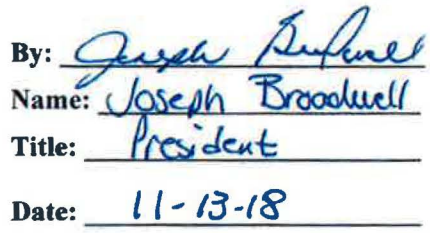 By: Joseph Broadwell
Name: Joseph Broadwell
Title: President
Date: 11-13-18